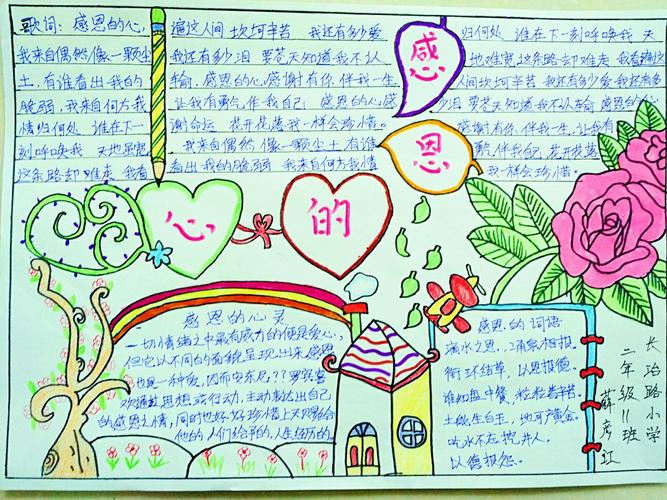 歌词:感恩的心,
我来自偶然像一颗尘
土,有谁看出我的
脆弱,我来自何方我
情归何处 谁在下一
刻呼唤我 天地虽宽
这条路却难走 我看
遍这人间 坎坷辛苦 我还有多少爱
我还有多少泪 要苍天知道我不认
输,感恩的心感谢有你,伴我一生
让我有勇气,作我自己 感恩的心感
谢命运,花开花落我一样会珍惜。
我来自偶然,像一颗尘土有谁
看出我的脆弱,我来自何方我情
归何处 谁在下一刻呼唤我 天
地难宽这条路却难走 我看遍这
人间坎坷辛苦 我还有多少爱我还有多
少泪 要苍天知道我不认输 感恩的心
感谢有你,伴我一生,让我有
勇气,作我自己,花开花落
我一样会珍惜。
感
恩
的
心
感恩的心灵
一切情绪之中最有威力的便是爱心,
但它以不同的面貌呈现出来感恩
也是一种爱,因而安东尼??罗宾喜
欢通过思想或行动,主动表达出自己
的感恩之情,同时也好好珍惜上天赐给
他的 人们给予的,人生经历的
感恩的词语
滴水之恩,涌泉相报,
衔环结草,以恩报德。
谁知盘中餐,粒粒皆辛苦。
土能生白玉,地可产黄金。
吃水不忘挖井人。
以德报怨。
长治路小学
二年级11班
薛彦江